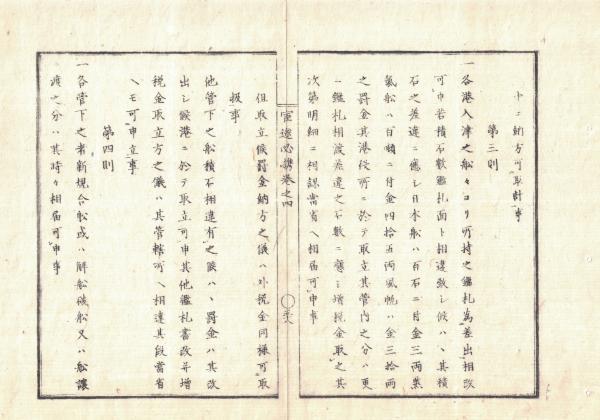 ト二納方可取計事
第三則
一各港入津之船々ヨリ所持之鑑札為差出相改
可申若積石数鑑札面ト相違致シ候ハヽ其積
石之差違ニ應シ日本船ハ百石ニ付金三両蒸
氣船ハ百噸ニ付金四拾五両風帆ハ金三拾両
之罰金其港役所ニ於テ取立其管内之分ハ更
ニ鑑札相渡差違之石数ニ應シ増税金取之其
次第明細ニ相認當省ヘ相届可申事
官途必携巻之四
但取立候罰金納方之儀ハ小税金同様可取
扱事
他管下之船積石相違有之候ハヽ罰金ハ其改
出シ候港ニ於テ取立可申其他鑑札書改并増
税金取立方之儀ハ其管轄所ヘ相達其段當省
ヘモ可申立事
第四則
一各管下之者新規合船或ハ解船破船又ハ船譲
渡之分ハ其時々相届可申事